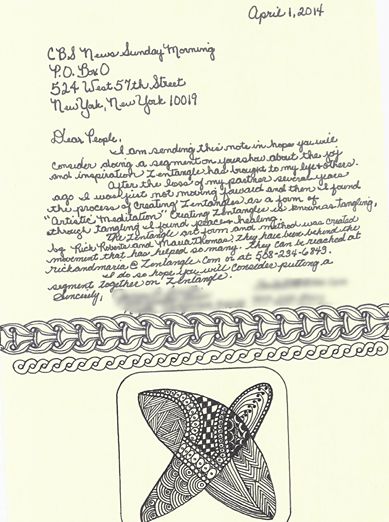 April 1, 2014
CBS News Sunday Morning
P.O. Box O
524 West 57th Street
New York, New York 10019
Dear People,
I am sending this note in hope you will
consider doing a segment on your show about the joy
and inspiration Zentangle has brought to my life & others.
After the loss of my partner several years
ago I was just not moving forward and then I found
the process of creating Zentangles as a form of
"Artistic Meditation" Creating Zentangles is known as tangling,
through tangling I found peace & healing.
The Zentangle art form and method was created
by Rick Roberts and Maria Thomas, they have been behind the
movement that has helped so many. They can be reached at
rickandmaria@Zentangle.com or at 508-234-6843.
I do so hope you will consider putting a
segment together on Zentangle.
Sincerely,